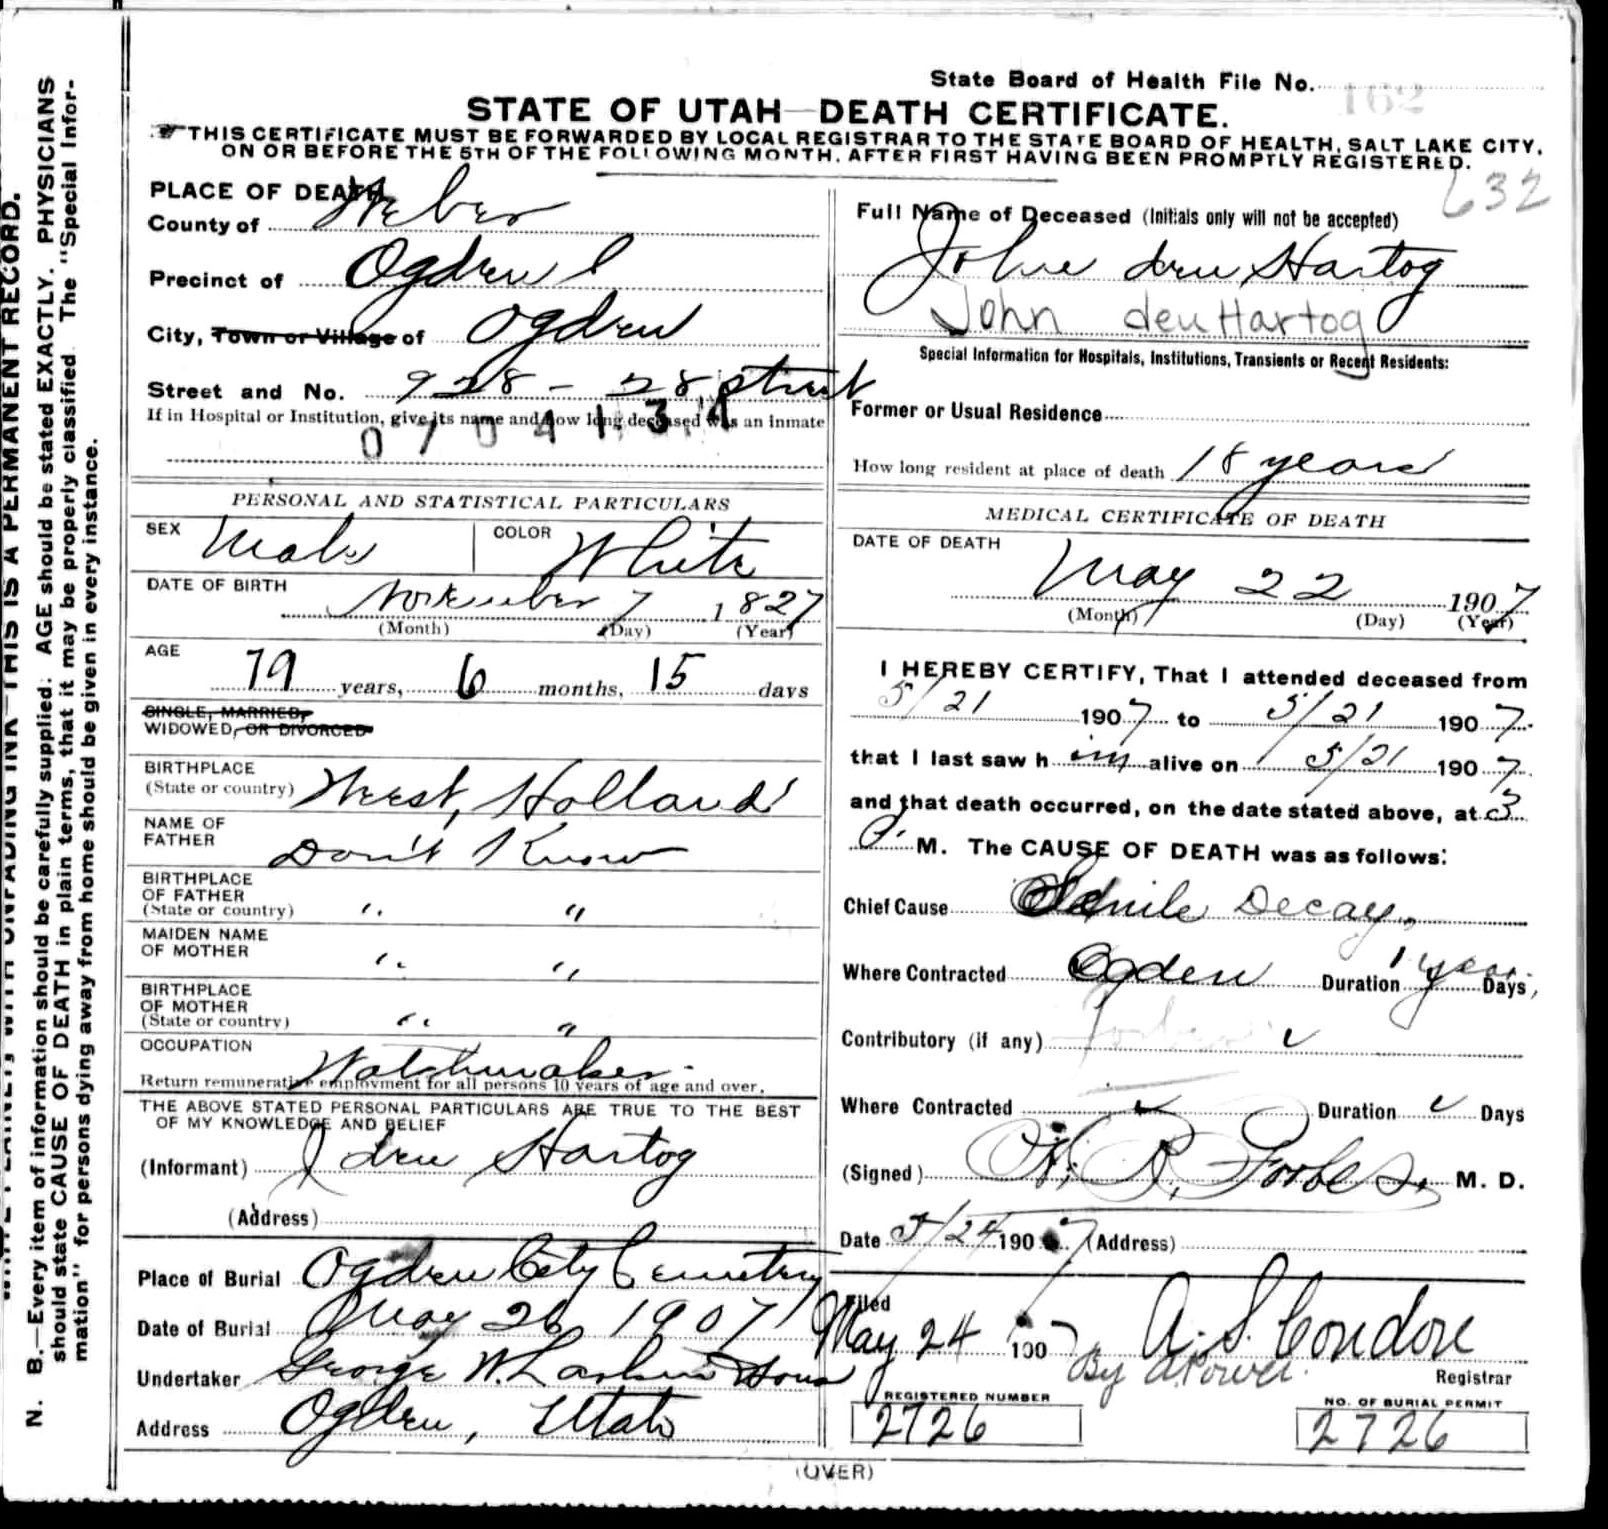 State Board of Health File No. 162
STATE OF UTAH—DEATH CERTIFICATE.
THIS CERTIFICATE MUST BE FORWARDED BY LOCAL REGISTRAR TO THE STATE BOARD OF HEALTH, SALT LAKE CITY,
ON OR BEFORE THE 5TH OF THE FOLLOWING MONTH, AFTER FIRST HAVING BEEN PROMPTLY REGISTERED.
632
N. B.—Every item of information should be carefully supplied. AGE should be stated EXACTLY. PHYSICIANS
should state CAUSE OF DEATH in plain terms, that it may be properly classified. The "Special Infor-
mation" for persons dying away from home should be given in every instance.
THIS IS A PERMANENT RECORD.
PLACE OF DEATH
County of Weber
Precinct of Ogden
City, Town or Village of Ogden
Street and No. 928 - 28 street
If in Hospital or Institution, give its name and how long deceased was an inmate
PERSONAL AND STATISTICAL PARTICULARS
SEX Male COLOR White
DATE OF BIRTH November 7 1827
(Month) (Day) (Year)
AGE
79 years, 6 months, 15 days
SINGLE, MARRIED,
WIDOWED, OR DIVORCED
BIRTHPLACE
(State or country) Heest, Holland
NAME OF
FATHER Don't Know
BIRTHPLACE
OF FATHER
(State or country) " "
MAIDEN NAME
OF MOTHER " "
BIRTHPLACE
OF MOTHER
(State or country) " "
OCCUPATION Watchmaker
Return remunerative employment for all persons 10 years of age and over.
THE ABOVE STATED PERSONAL PARTICULARS ARE TRUE TO THE BEST
OF MY KNOWLEDGE AND BELIEF
(Informant) J den Hartog
(Address)
Place of Burial Ogden City Cemetery
Date of Burial May 26 1907
Undertaker George W. Larkin & Sons
Address Ogden, Utah
Full Name of Deceased (Initials only will not be accepted)
John den Hartog
John den Hartog
Special Information for Hospitals, Institutions, Transients or Recent Residents:
Former or Usual Residence
How long resident at place of death 18 years
MEDICAL CERTIFICATE OF DEATH
DATE OF DEATH
May 22 1907
(Month) (Day) (Year)
I HEREBY CERTIFY, That I attended deceased from
5/21 1907 to 5/21 1907
that I last saw him alive on 5/21 1907
and that death occurred, on the date stated above, at 3
M. The CAUSE OF DEATH was as follows:
Chief Cause Senile Decay,
Where Contracted Ogden Duration 1 year Days,
Contributory (if any)
Where Contracted Duration Days
(Signed) H. R. Forbes, M. D.
Date 5/24 1907 (Address)
Filed
May 24 1907 A. S. Condon
By
Registrar
REGISTERED NUMBER
2726
NO. OF BURIAL PERMIT
2726
(OVER)